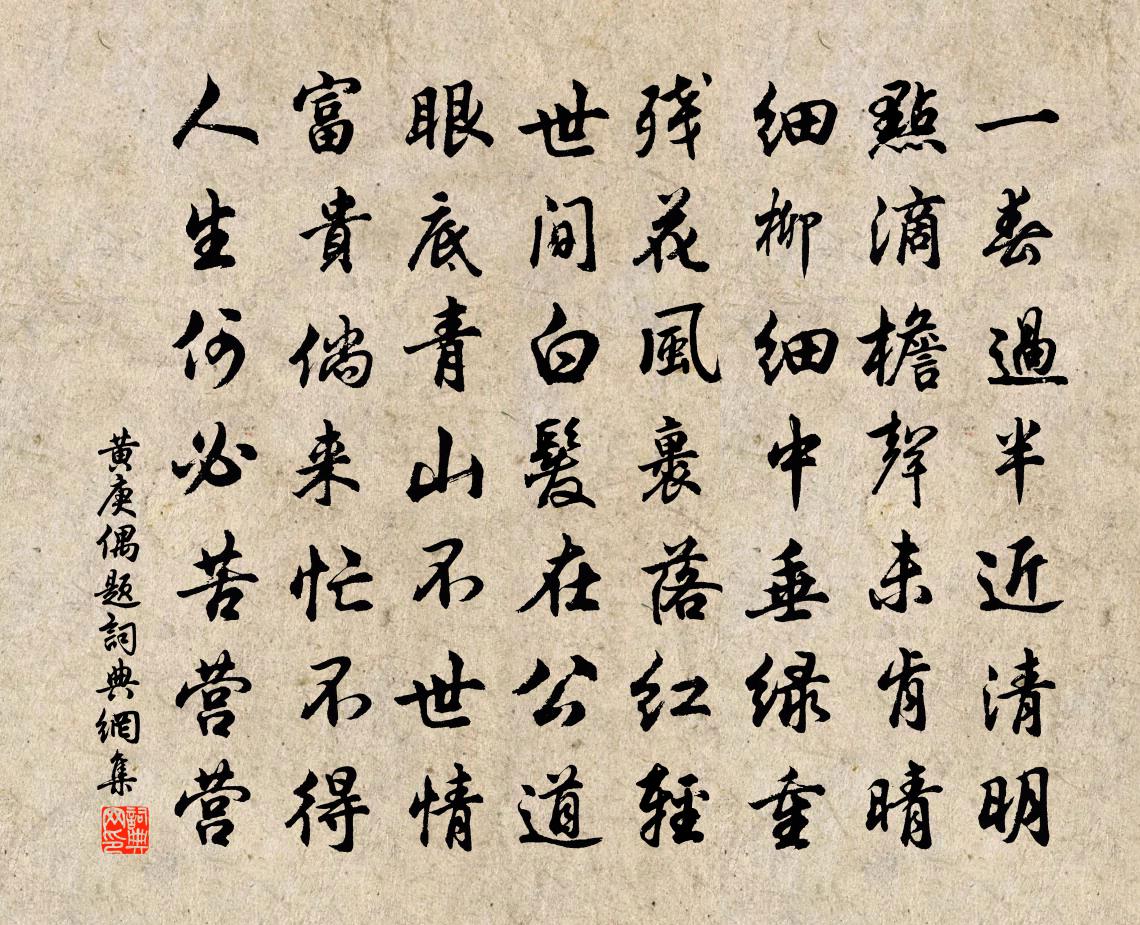 一春過半近清明
點滴檐聲未肯晴
細柳細中垂绿重
残花風裏落红輕
世间白髮在公道
眼底青山不世情
富貴倘来忙不得
人生何必苦营营
黄庚偶题詞典網集
詞典网印